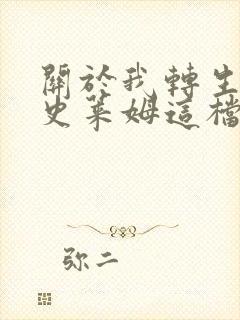 關於我轉生
史萊姆這檔
弥二